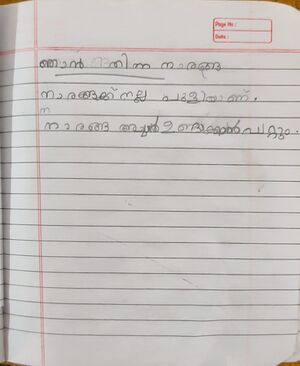 Page No :
Date :
ഞാൻ തിന്ന നാരങ്ങ
നാരങ്ങക്ക് നല്ല പുളിയാണ്.
ന
നാരങ്ങ അച്ചാർ ഉണ്ടാക്കാൻ പറ്റും.